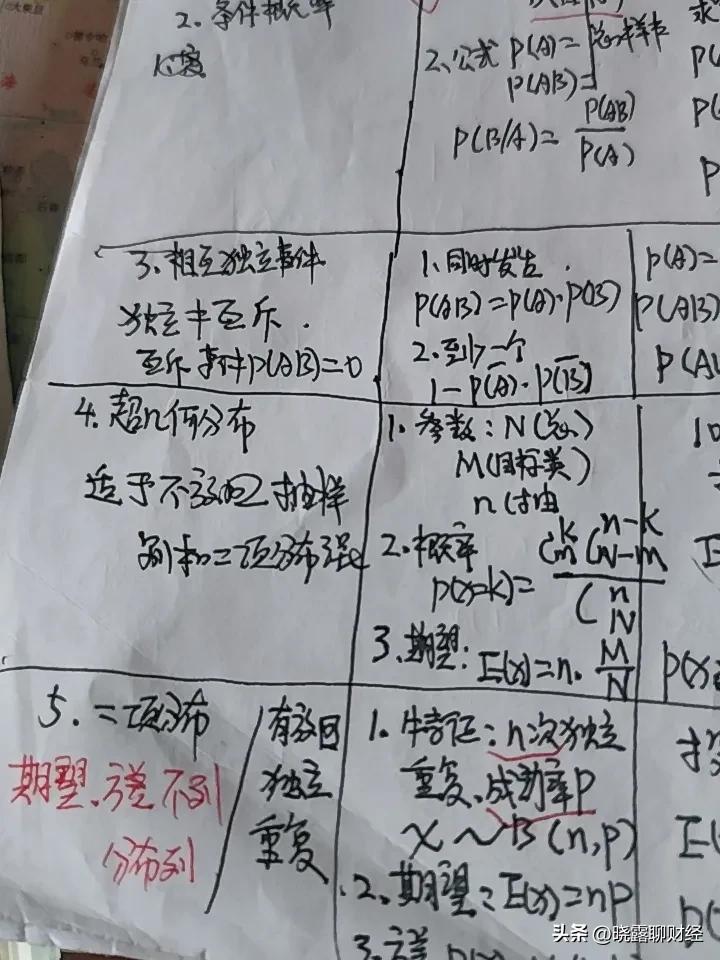 2. 条件概率
2、公式 P(A)=
P(AB)=
P(B/A)= P(AB)/P(A)
3. 相互独立事件
独立≠互斥.
互斥事件P(AB)=0
1、同时发生.
P(AB)=P(A)·P(B)
2. 至少一个
1-P(A̅)·P(B̅)
P(A)=
P(AB)
P(AU
4. 超几何分布
适于不放回抽样
别和二项分布混
1. 参数: N(总)
M(目标类)
n(抽
2. 概率
P(x=k)= C_m^k C_{N-m}^{n-k} / C_N^n
3. 期望: E(x)=n· M/N
P(x=
5. 二项分布
期望、方差不列
分布列
有放回
独立
重复
1. 特征: n次独立
重复、成功率p
X~B(n,p)
2. 期望: E(x)=np
3. 方差
头条 @晓露聊财经